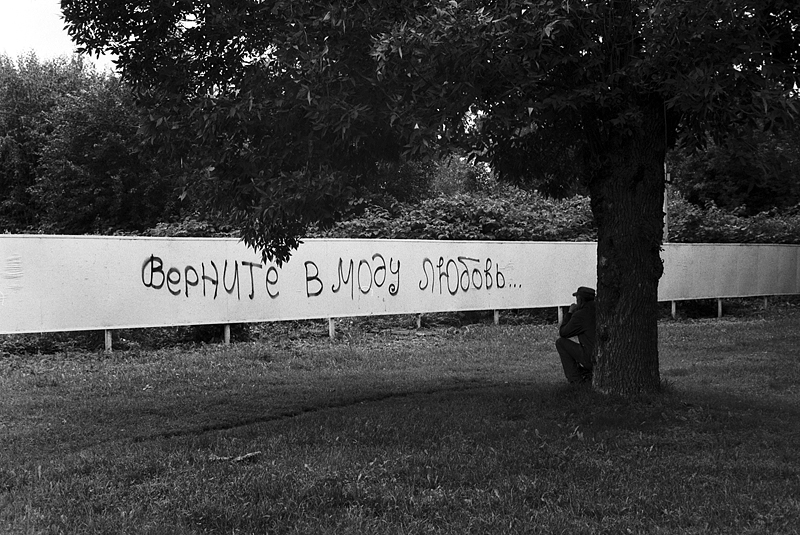 Верните в моду любовь...